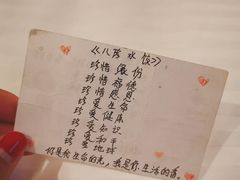 《八珍水饺》
珍惜缘份
珍惜福德
珍惜感恩
珍爱生命
珍爱健康
珍爱知识
珍爱和平
珍爱地球
你是我生命的光，我是你生活的喜。